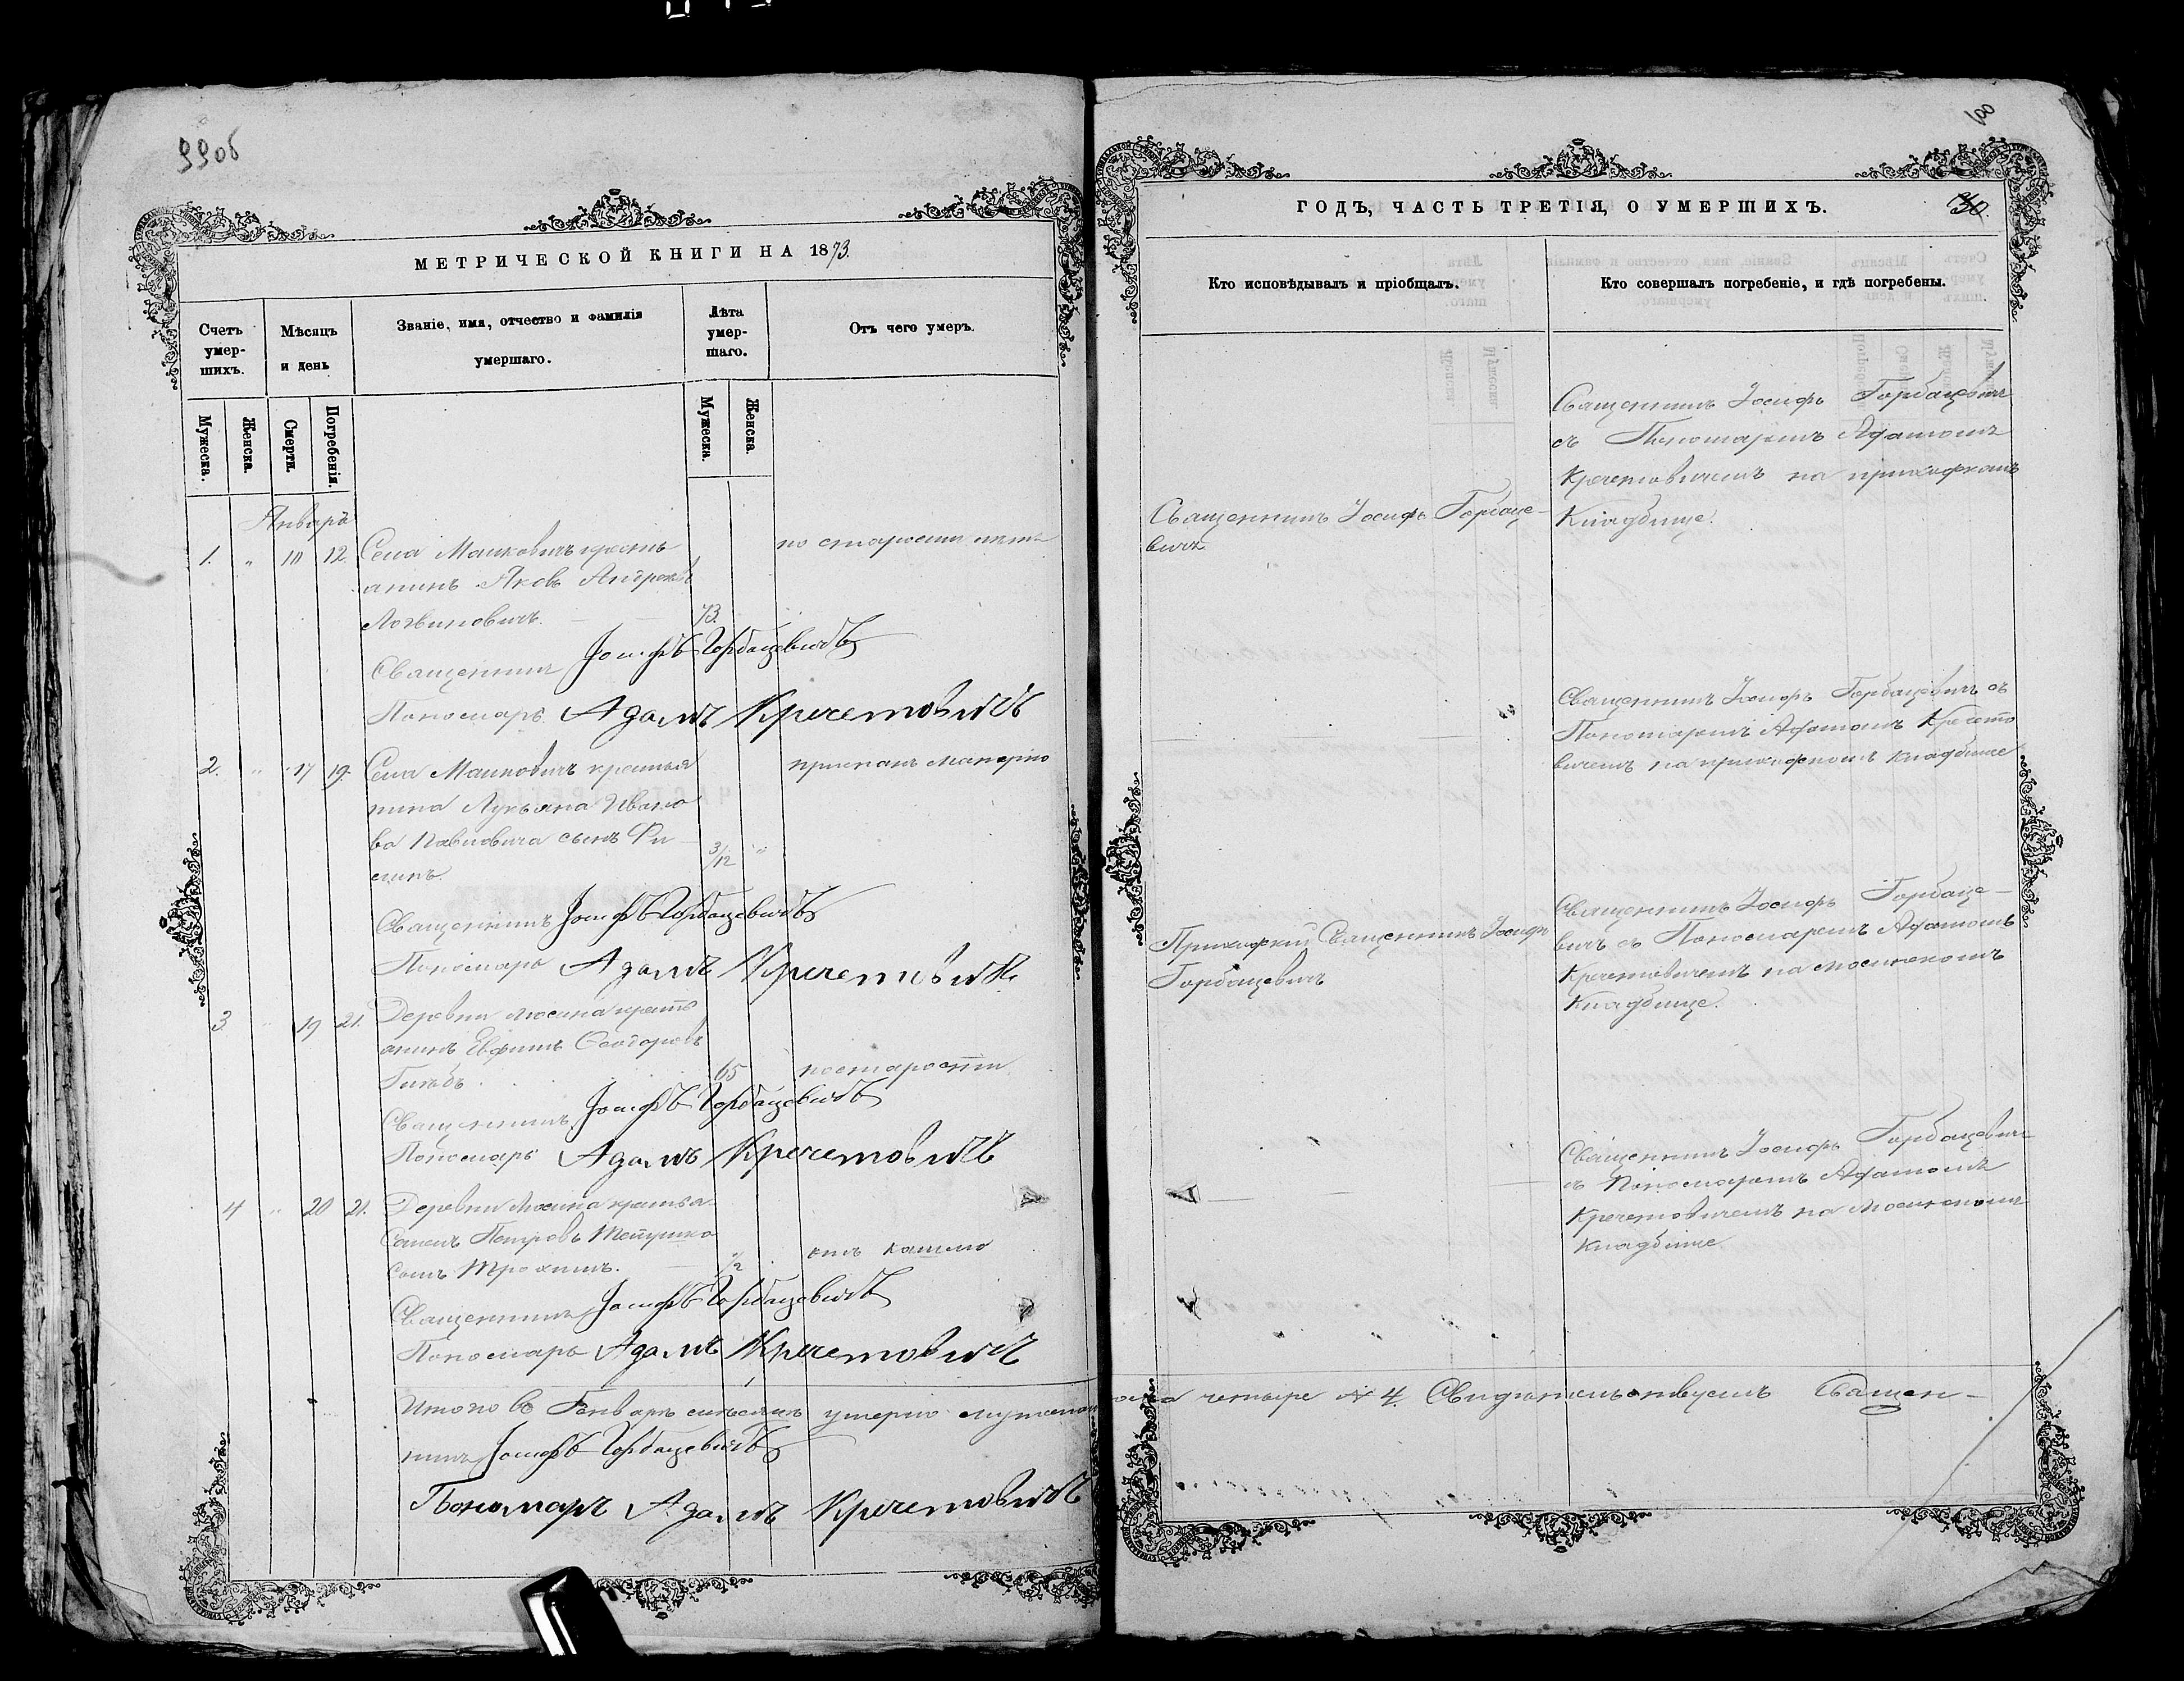 99об
МЕТРИЧЕСКОЙ КНИГИ НА 1873
Счетъ умер-шихъ.
Мѣсяцъ и день
Званіе, имя, отчество и фамилія умершаго.
Лѣта умер-шаго.
Отъ чего умеръ.
Мужеска.
Женска.
Смерти.
Погребенія.
Мужеска.
Женска
Январь
1. " 10 12. Села Малковичъ кресть
по старости лѣтъ
янинъ Яковъ Андреевъ
Логвиновичъ. 73.
Священникъ Іосифъ Горбацевичъ
Пономарь Адамъ Кречетовичъ
2. " 17 19. Села Малковичъ крестья
нина Лукьяна Ивано
ва Павловича сынъ Фи
3/12 "
Священникъ Іосифъ Горбацевичъ
Пономарь Адамъ Кречетовичъ
3 " 19 21. Деревни Мосина кресть
янинъ Евфимъ Ѳеодоровъ
65 по старости
Священникъ Іосифъ Горбацевичъ
Пономарь Адамъ Кречетовичъ
4 " 20 21. Деревни Мосина крестья
сынъ Трохимъ. 1/2
Священникъ Іосифъ Горбацевичъ
Пономарь Адамъ Кречетовичъ
Итого въ Генварѣ мѣсяцѣ умерло мужеска
пола четыре № 4. Свидѣтельствуемъ Священ-
никъ Іосифъ Горбацевичъ
Пономарь Адамъ Кречетовичъ
100
ГОДЪ, ЧАСТЬ ТРЕТІЯ, О УМЕРШИХЪ.
30.
Кто исповѣдывалъ и пріобщалъ.
Кто совершалъ погребеніе, и гдѣ погребены.
Священникъ Іосифъ Горбаце-
вичъ
Священникъ Іосифъ Горбацевичъ
съ Пономаремъ Адамомъ
Кречетовичемъ на приходскомъ
Кладбище.
Священникъ Іосифъ Горбацевичъ съ
Пономаремъ Адамомъ Кречето
вичемъ на приходскомъ кладбище
Приходскій Священникъ Іосифъ
Горбацевичъ
Священникъ Іосифъ Горбаце-
вичъ съ Пономаремъ Адамомъ
Кречетовичемъ на Мосинскомъ
Кладбище.
Священникъ Іосифъ Горбацевичъ
съ Пономаремъ Адамомъ
Кречетовичемъ на Мосинскомъ
Кладбище.